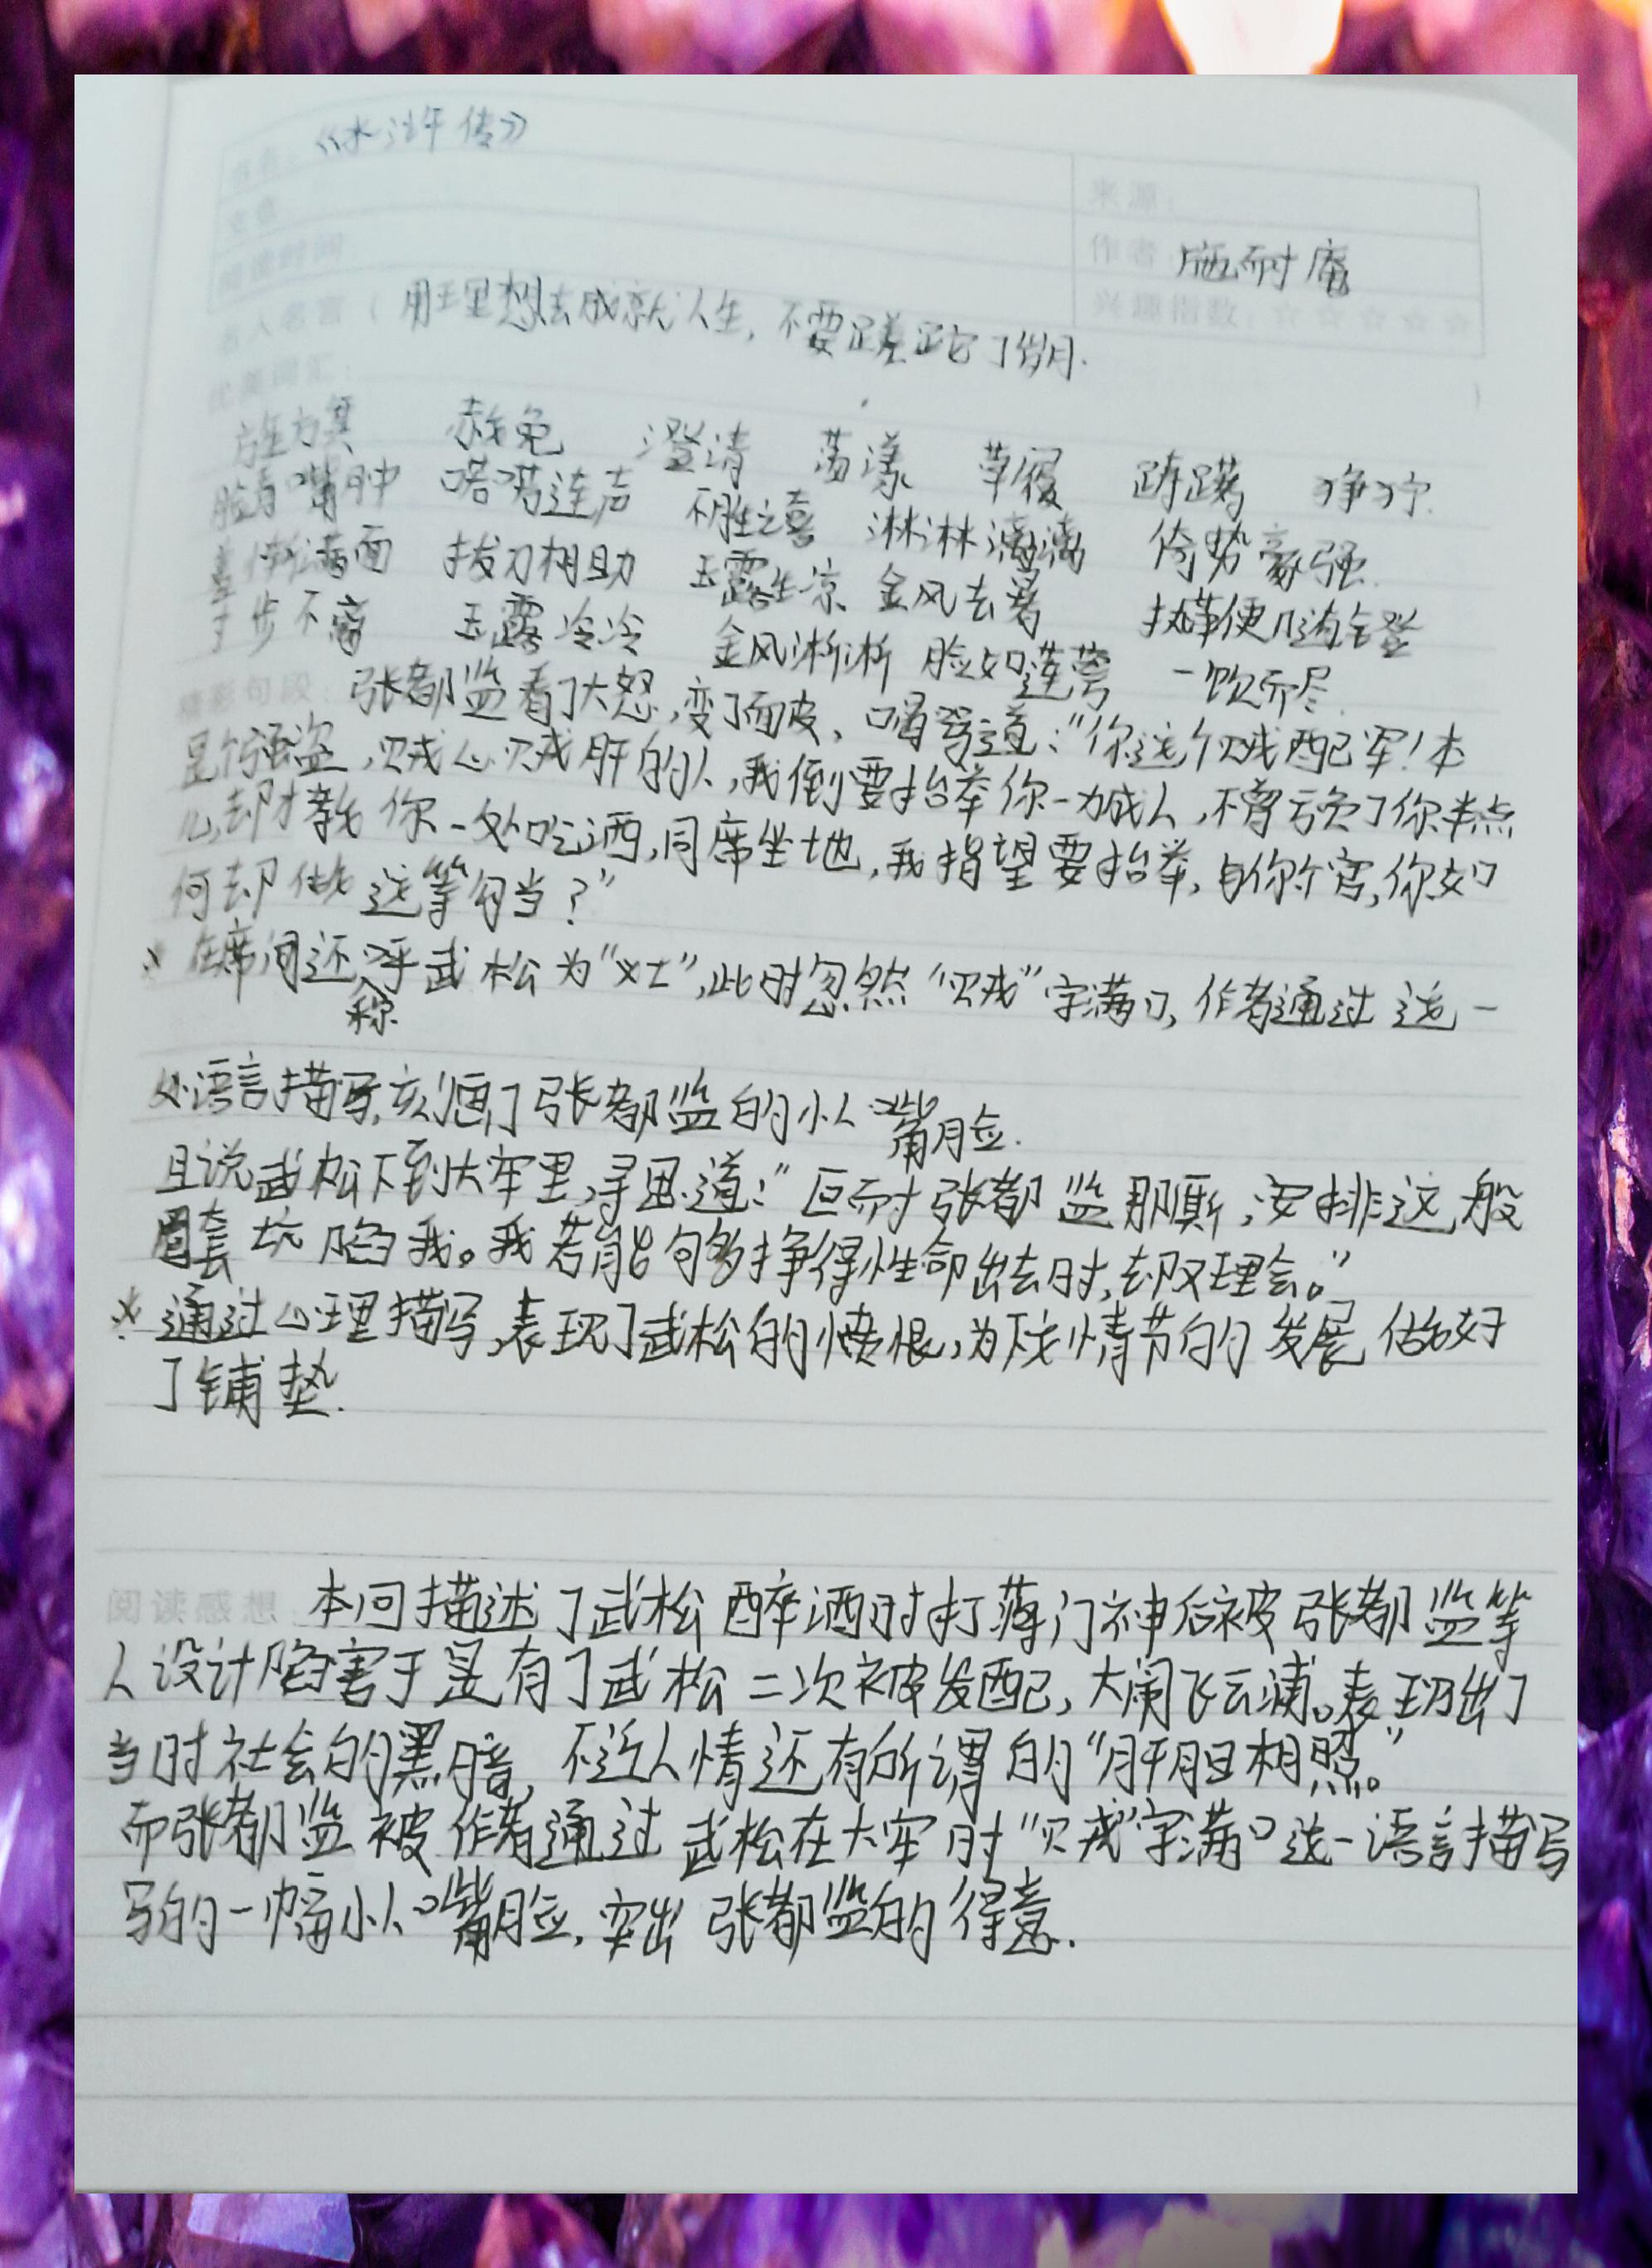 书名：《水浒传》
来源：
文章
作者 施耐庵
阅读时间
兴趣指数：☆☆☆☆☆
名人名言（用理想去成就人生，不要蹉跎了岁月.）
优美词汇：
旌旗 赦免 澄清 荡漾 草履 踌躇 狰狞
脸青嘴肿 喏喏连声 不胜之喜 淋淋漓漓 倚势豪强
羞惭满面 拔刀相助 玉露生凉 金风去暑 执鞭随镫
寸步不离 玉露泠泠 金风淅淅 脸如莲萼 一饮而尽
精彩句段：张都监看了大怒，变了面皮，喝骂道：“你这个贼配军！本
是个强盗，贼心贼肝的人，我倒要抬举你一力成人，不曾亏负了你半点
儿，却才教你一处吃酒，同席坐地，我指望要抬举，与你个官，你如
何却做这等勾当？”
* 在席间还称呼武松为“义士”，此时忽然“贼”字满口，作者通过这一
处语言描写，刻画了张都监的小人嘴脸.
且说武松下到大牢里，寻思道：“叵耐张都监那厮，安排这般
圈套坑陷我。我若能够挣得性命出去时，却又理会。”
* 通过心理描写，表现了武松的愤恨，为下文情节的发展做好
了铺垫.
阅读感想：本回描述了武松醉酒时打蒋门神后被张都监等
人设计陷害于是有了武松二次被发配，大闹飞云浦。表现出了
当时社会的黑暗，不近人情还有所谓的“肝胆相照。”
而张都监被作者通过武松在大牢时“贼”字满口这一语言描写
写的一幅小人嘴脸，突出张都监的得意.